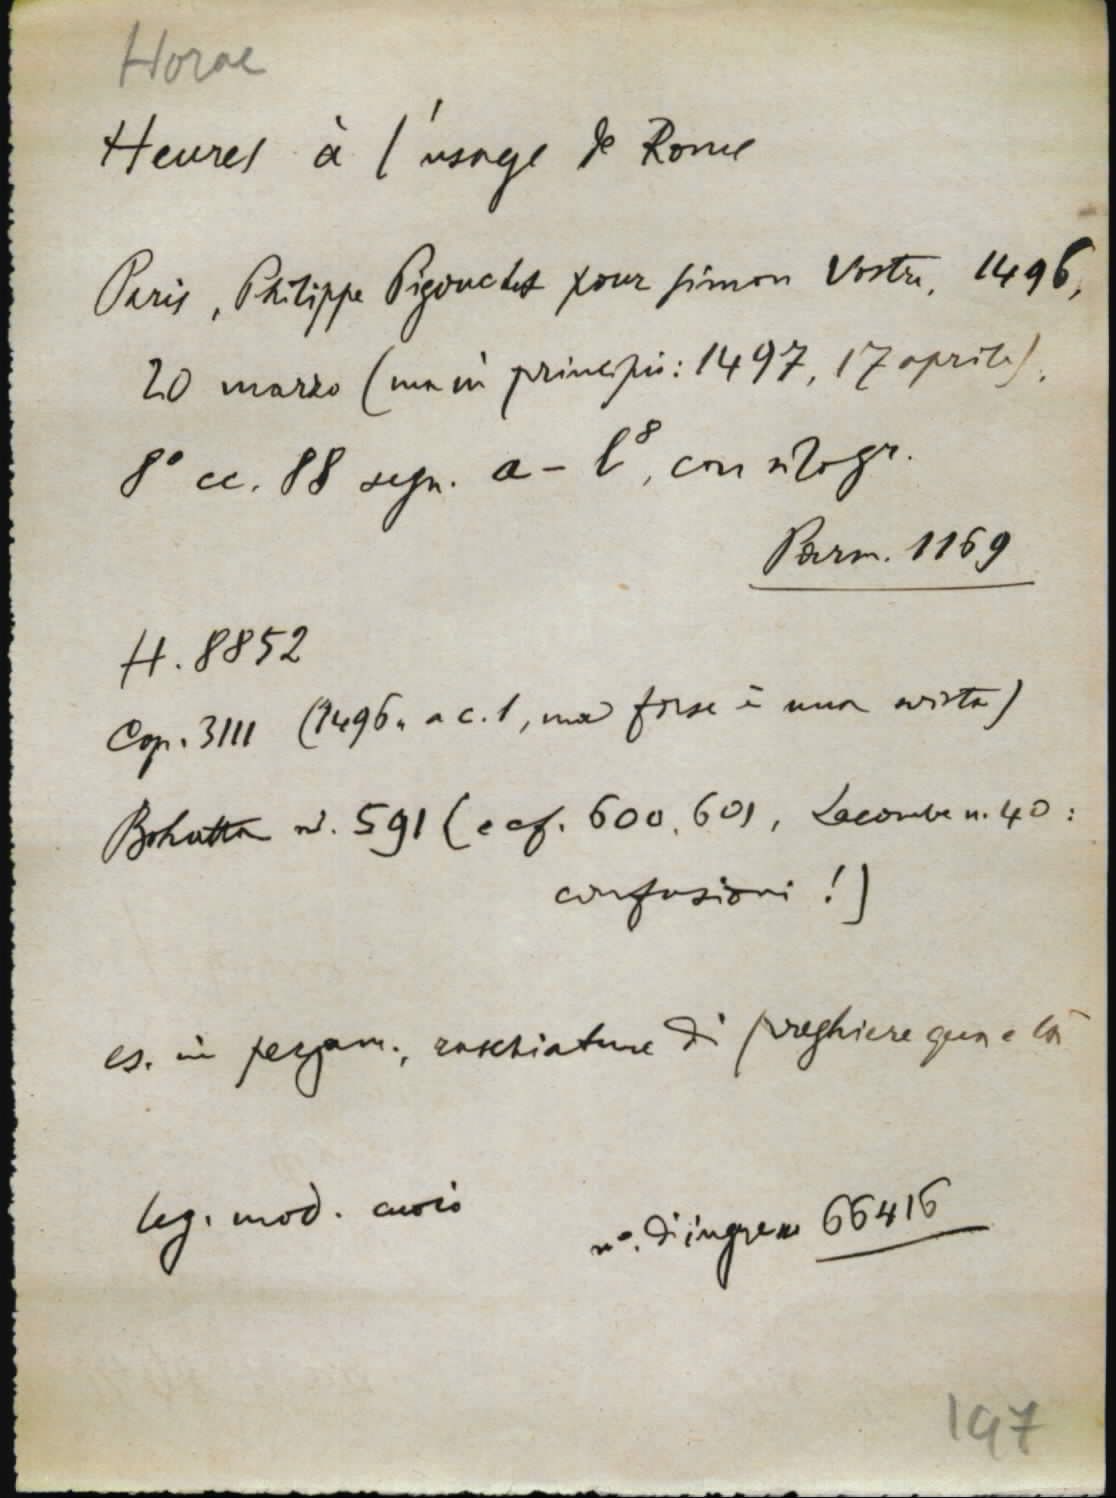 Horae
Heures à l'usage de Rome
Paris, Philippe Pigouchet pour Simon Vostre, 1496,
20 marzo (ma in principio: 1497, 17 aprile).
8° cc. 88 segn. a-l⁸, con silogr.
Parm. 1169
H. 8852
Cop. 3111 (1496 a c. 1, ma forse è una svista)
Bohatta n. 591 (e cf. 600, 601, Lacombe n. 40:
confusioni!)
es. in pergam., raschiature di preghiere qua e là
leg. mod. cuoio
n°. di ingresso 66416
197